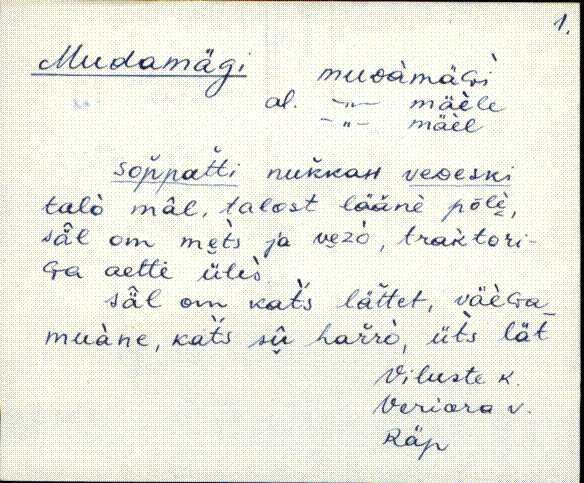 1.
Mudamägi muᴅàmäɢì
al. -"- mäèle
-"- mäèl
sop̆pat̆ti nuk̆kaʜ veᴅeski
talò mâl, talost lääne̮ po̮lè,
sä̂l om me̮t̀s ja ve̮zò, trak̀tori-
ɢa aetti ülès.
sä̂l om kat̆̀s lät̆tet, väèɢa
muàne, kat̆̀s sṷ̂ har̆rò, üt̀s lät̆
Viluste k.
Veriora v.
Räp